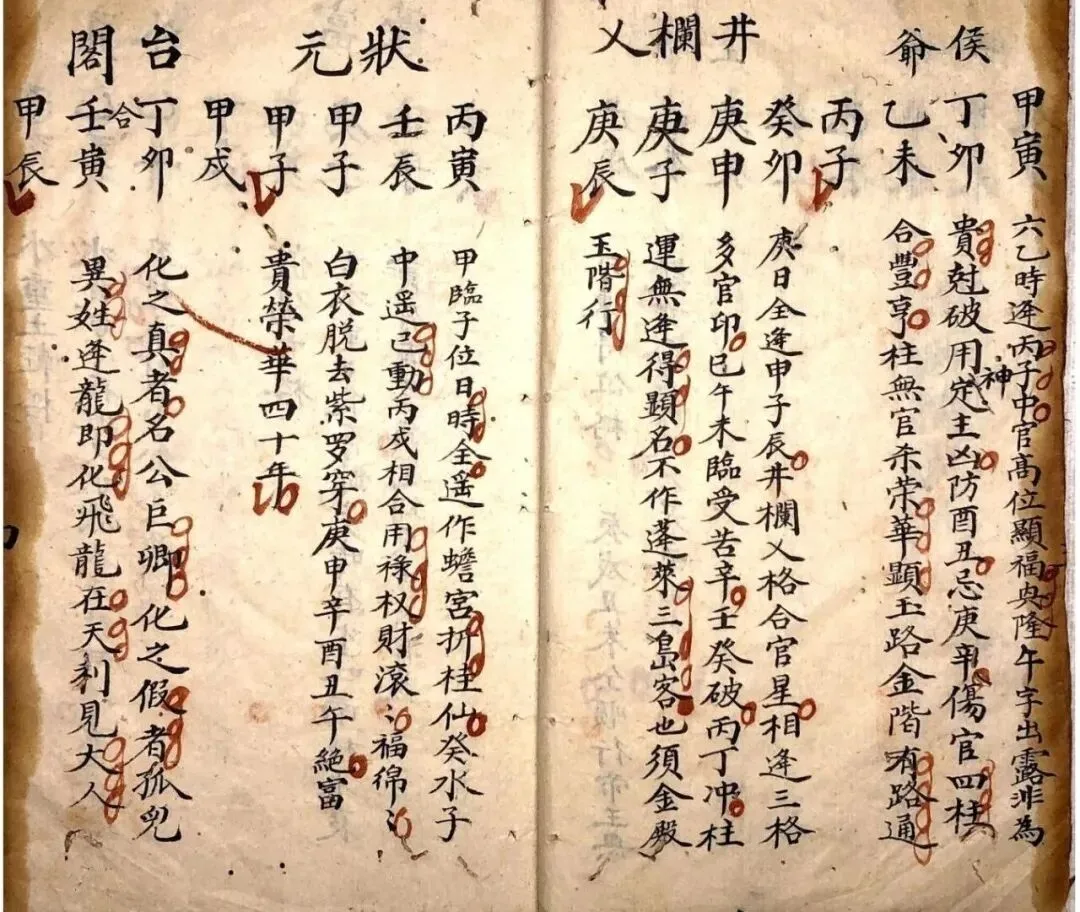 侯爺
甲寅 六乙時逢丙子中官髙位顯福與隆午字出露非為
丁卯 貴尅破用神定主凶防酉丑忌庚辛傷官四柱
乙未 合豐亨柱無官杀荣華顯玉路金階有路通
丙子
井欄乂
癸卯 庚日全逢申子辰井欄乂格合官星相逢三格
庚申 多官印巳午未臨受苦辛壬癸破丙丁冲柱
庚子 運無逢得顯名不作蓬萊三島客也須金殿
庚辰 玉階行
狀元
丙寅 甲臨子位日時全遥作蟾宮折桂仙癸水子
壬辰 中遥己動丙戍相合用祿权財滚〻福綿〻
甲子 白衣脱去紫罗穿庚申辛酉丑午絶富
甲子 貴榮華四十年
甲戍
台閣
丁卯 化之真者名公巨卿化之假者孤兒
合
壬寅 異姓逢龍即化飛龍在天利見大人
甲辰